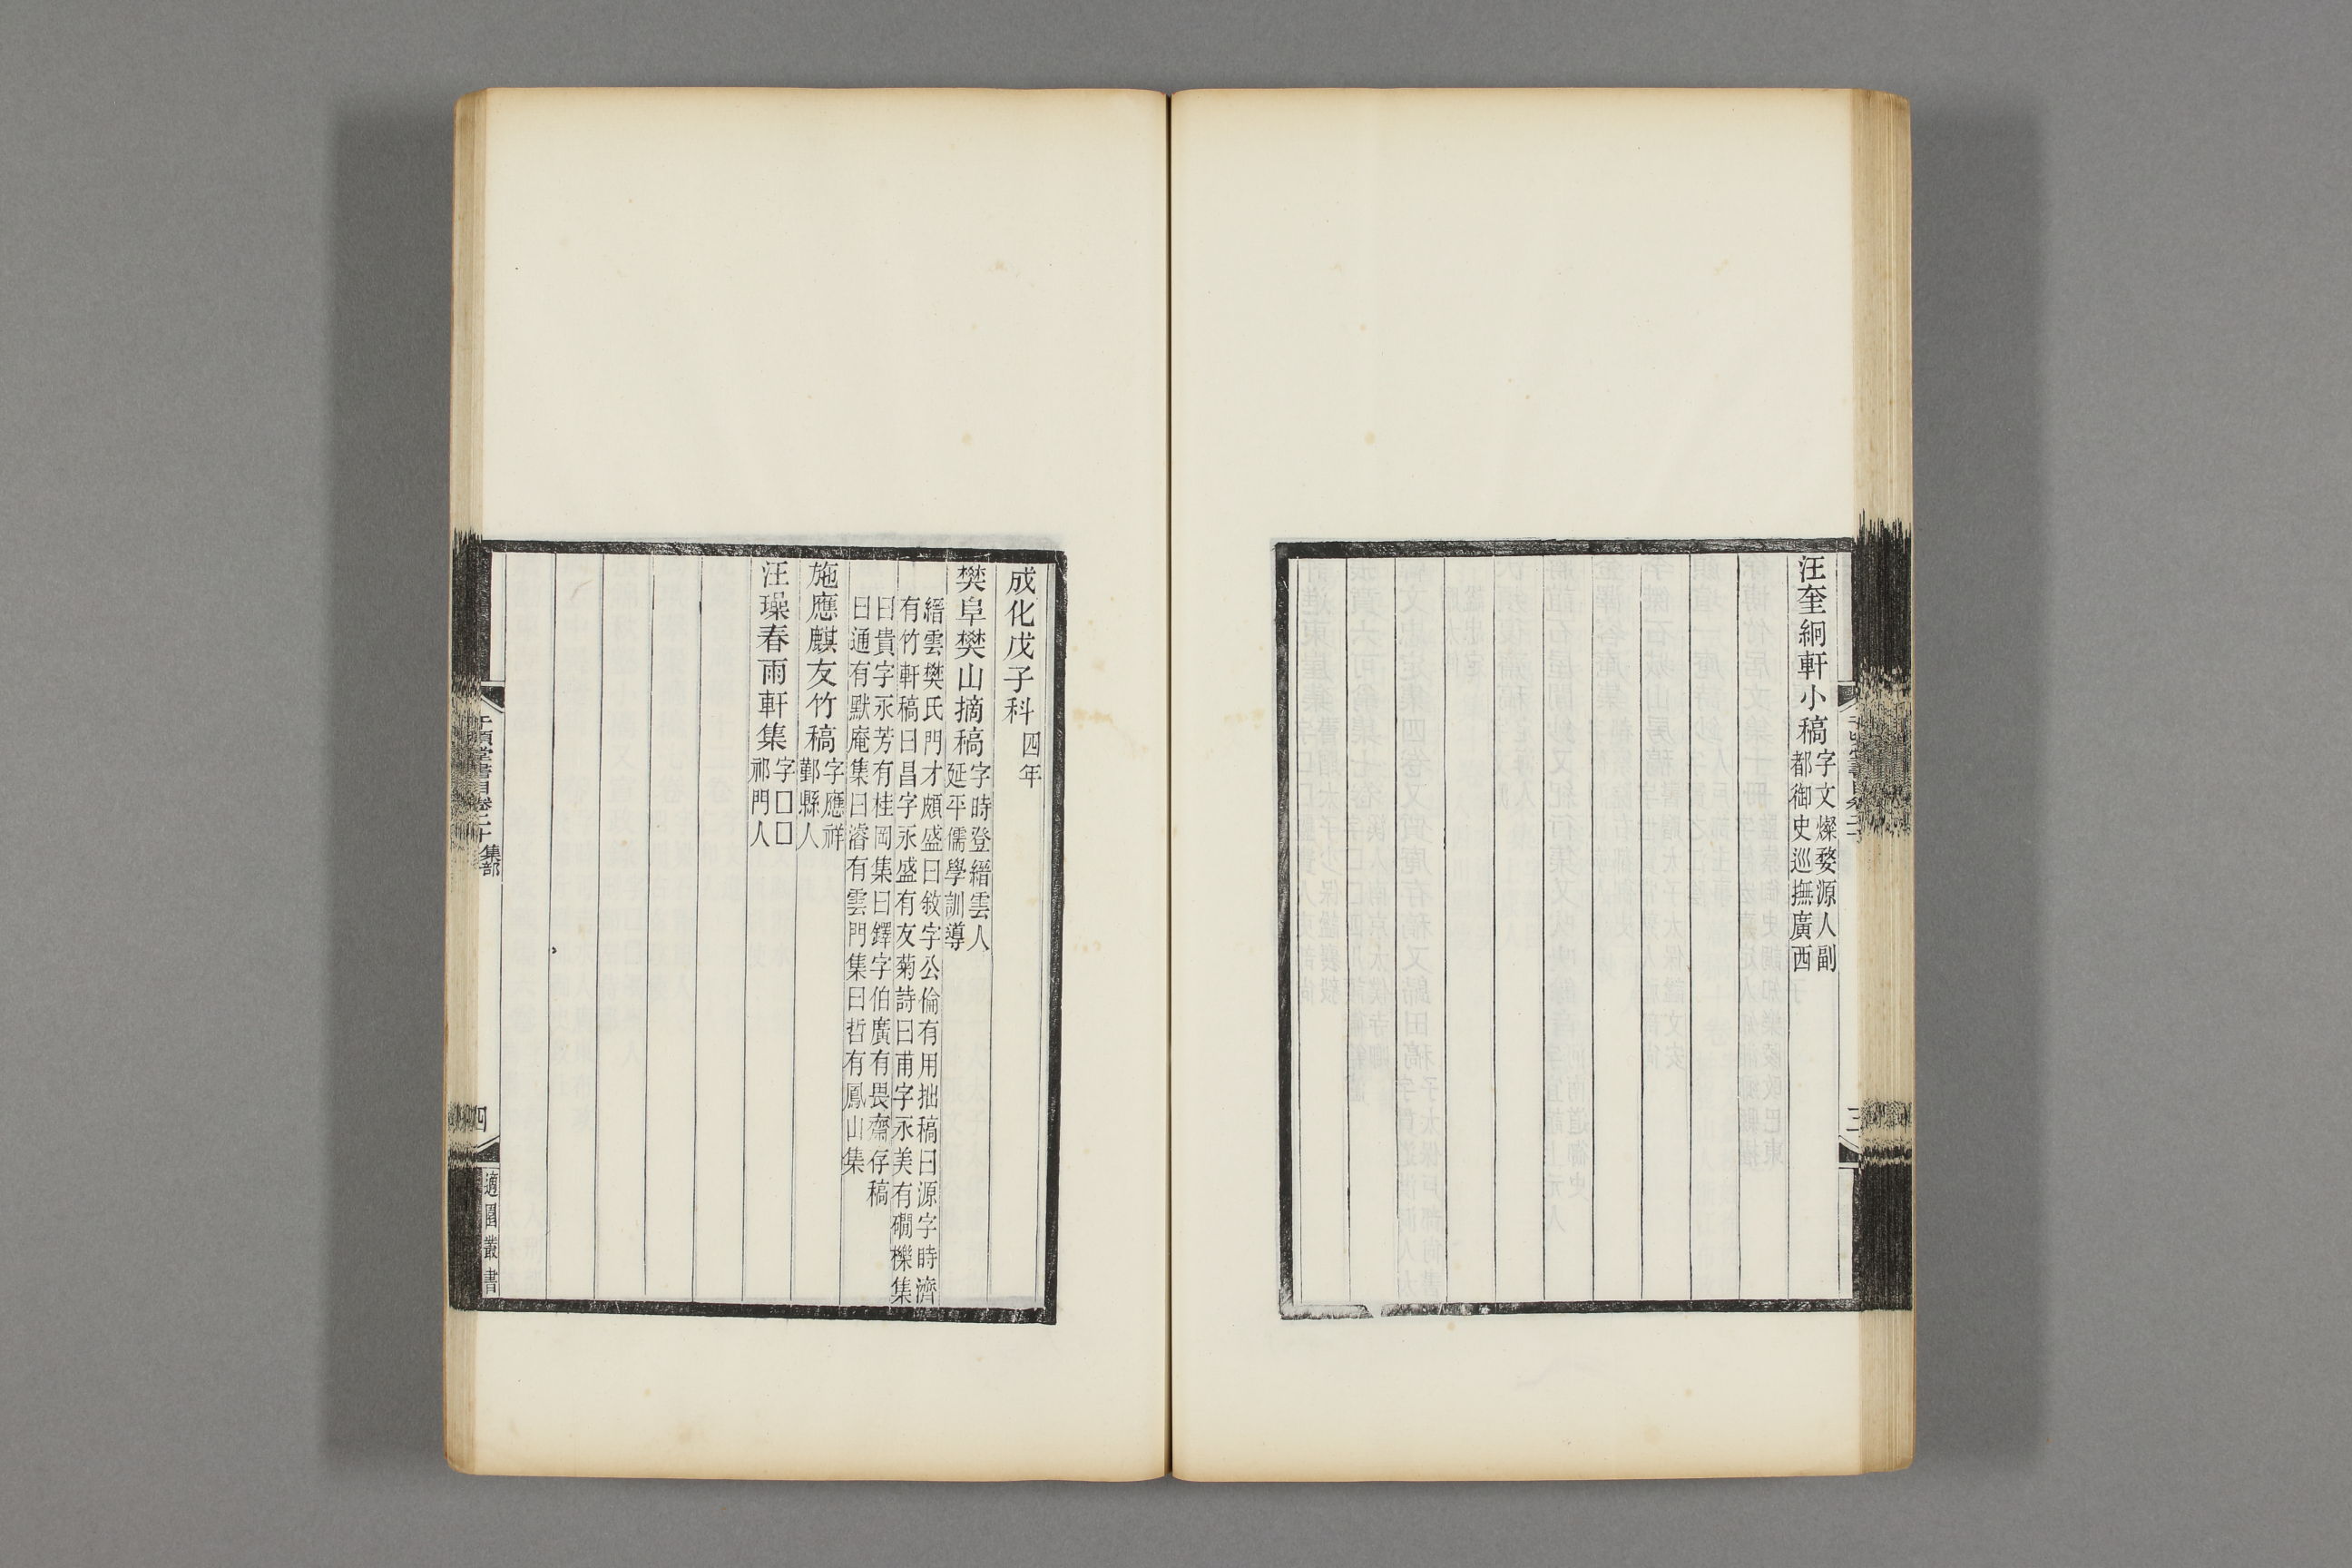 汪奎絅軒小稿字文燦婺源人副
都御史巡撫廣西
三
成化戊子科四年
樊阜樊山摘稿字時登縉雲人
延平儒學訓導
縉雲樊氏門才頗盛曰敘字公倫有用拙稿曰源字時濟
有竹軒稿曰昌字永盛有友菊詩曰甫字永美有磵櫟集
曰貴字永芳有桂岡集曰鐸字伯廣有畏齋存稿
曰通有默庵集曰濬有雲門集曰哲有鳳山集
施應麒友竹稿字應祥
鄞縣人
汪璪春雨軒集字囗囗
祁門人
千頃堂書目卷二十集部
四
適園叢書